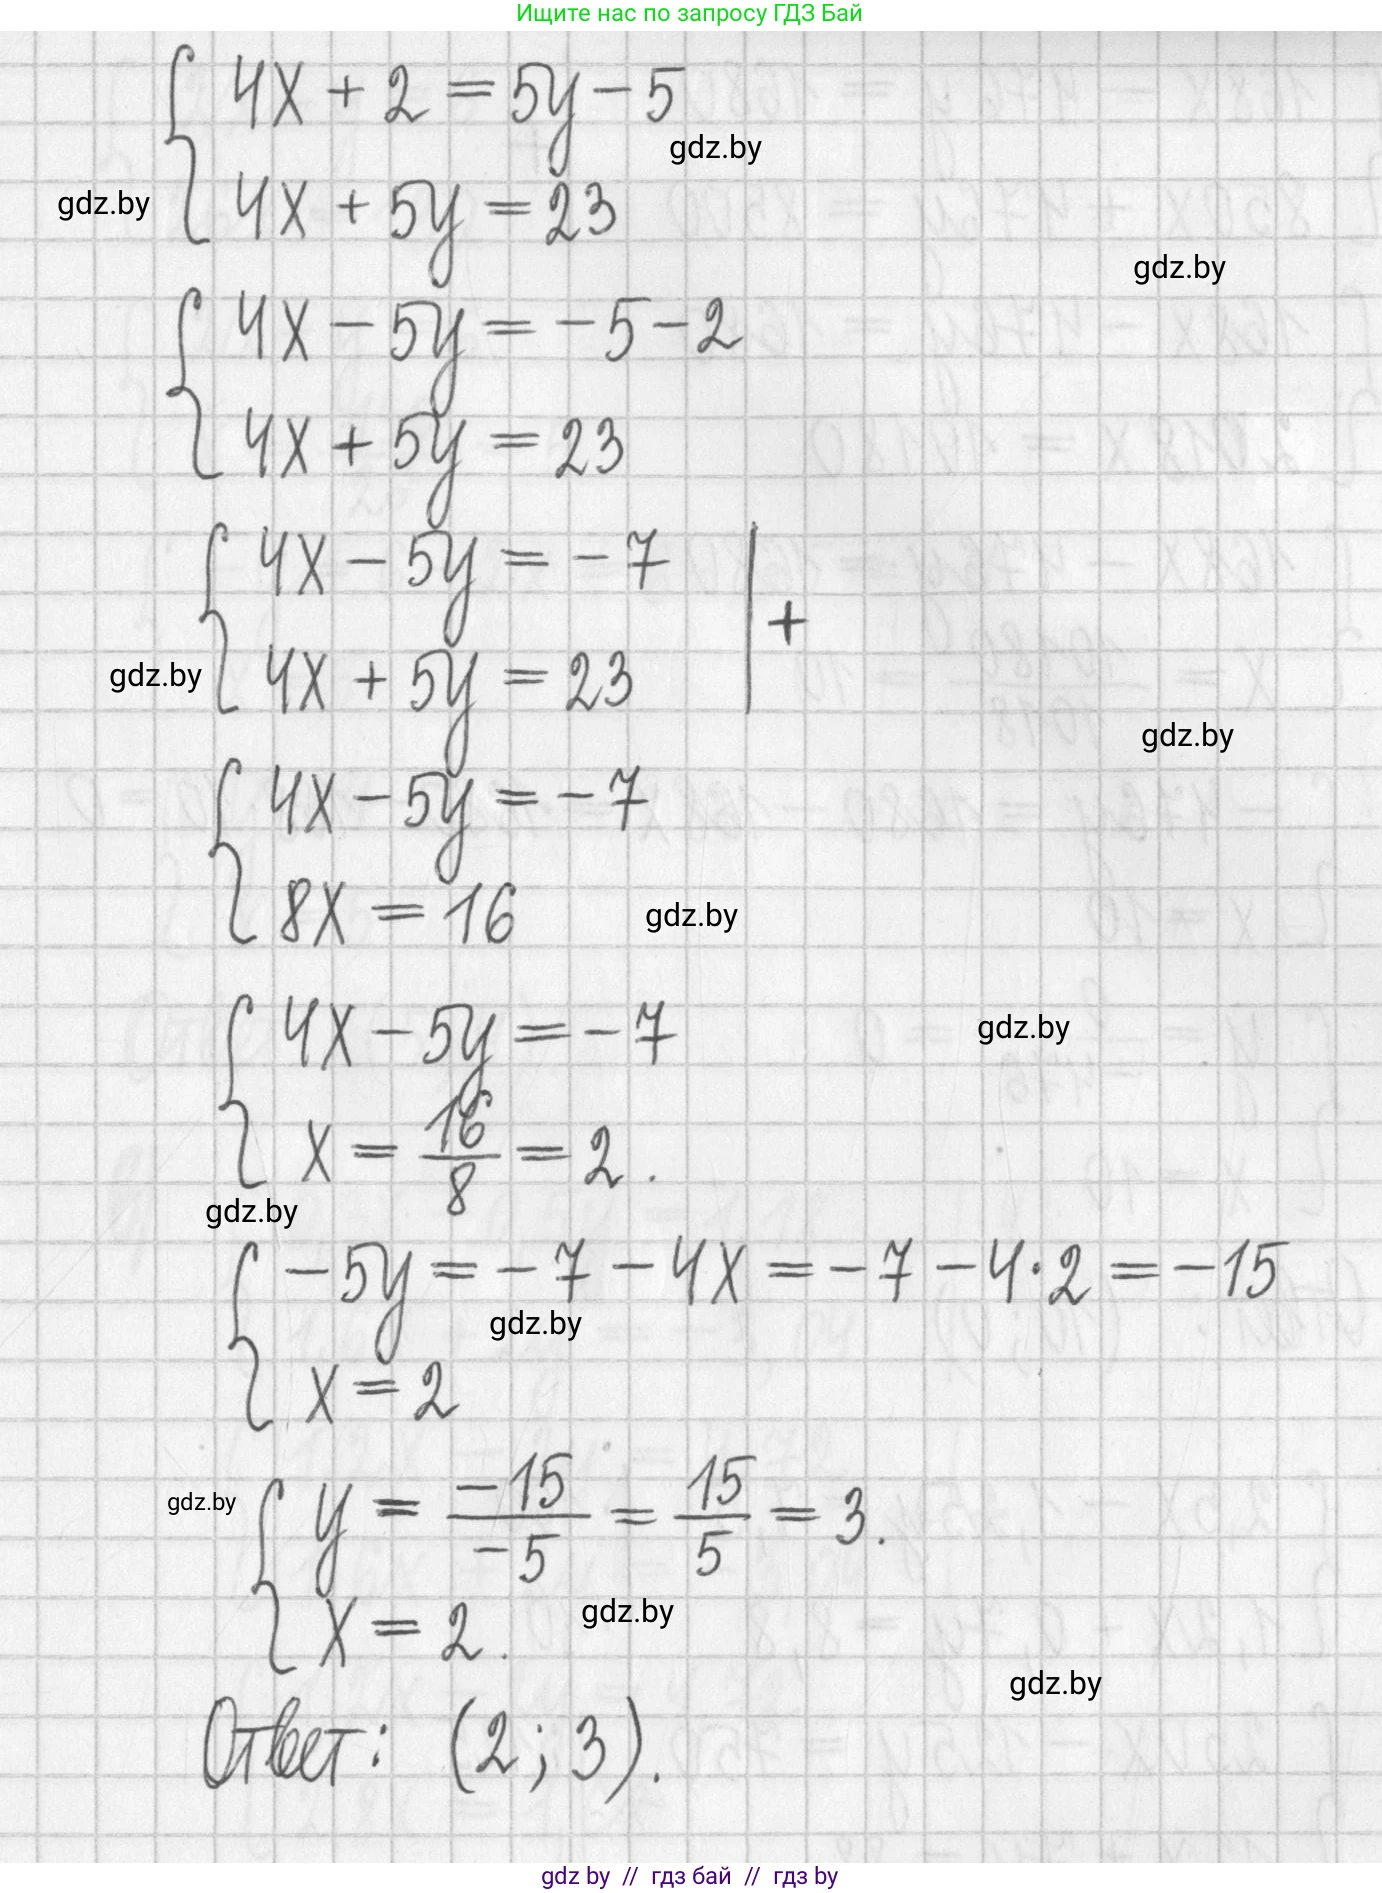 Ищите нас по запросу ГДЗ Бай
4x + 2 = 5y - 5
gdz.by
gdz.by
4x + 5y = 23
gdz.by
4x - 5y = -5 - 2
4x + 5y = 23
4x - 5y = -7
+
gdz.by
4x + 5y = 23
gdz.by
4x - 5y = -7
8x = 16
gdz.by
4x - 5y = -7
gdz.by
x = 16/8 = 2.
gdz.by
-5y = -7 - 4x = -7 - 4·2 = -15
gdz.by
x = 2
gdz.by
y = -15/-5 = 15/5 = 3.
x = 2.
gdz.by
gdz.by
Ответ: (2; 3).
gdz by // гдз бай // гдз by